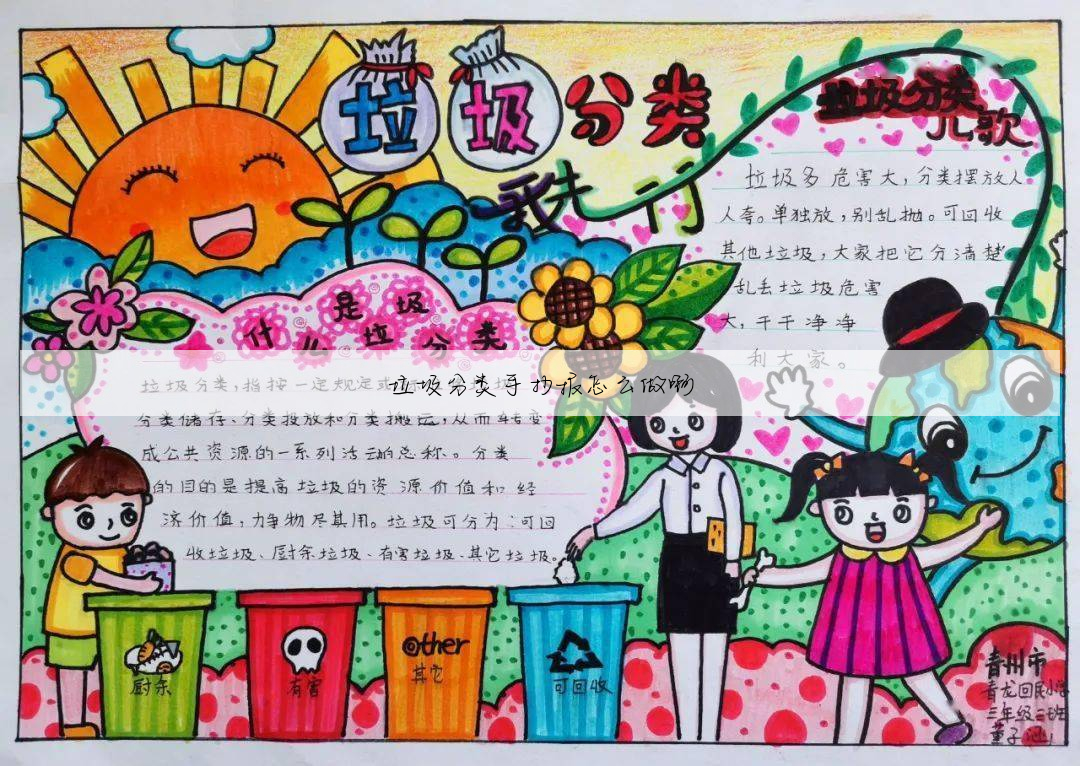 垃圾分类
我先行
垃圾分类
儿歌
垃圾多危害大，分类摆放人
人夸。单独放，别乱抛。可回收
其他垃圾，大家把它分清楚
乱丢垃圾危害
大，干干净净
利大家。
什么是垃圾分类
垃圾分类，指按一定规定或
垃圾分类手抄报怎么做啊
分类储存、分类投放和分类搬运，从而转变
成公共资源的一系列活动的总称。分类
的目的是提高垃圾的资源价值和经
济价值，力争物尽其用。垃圾可分为：可回
收垃圾、厨余垃圾、有害垃圾、其它垃圾。
厨余
有害
other
其它
可回收
青州市
青龙回民小学
三年级二班
董子涵